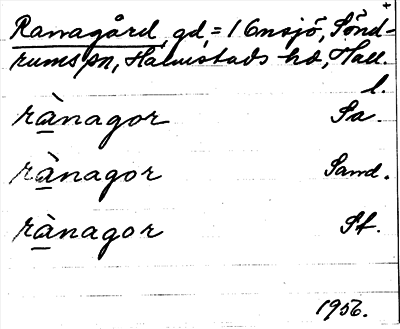 Ranagård, gd, = 1 Gnsjö, Sönd-
rums sn, Halmstads hd, Hall.
l.
rànagor Sa.
rànagor Sand.
rànagor St.
1956.